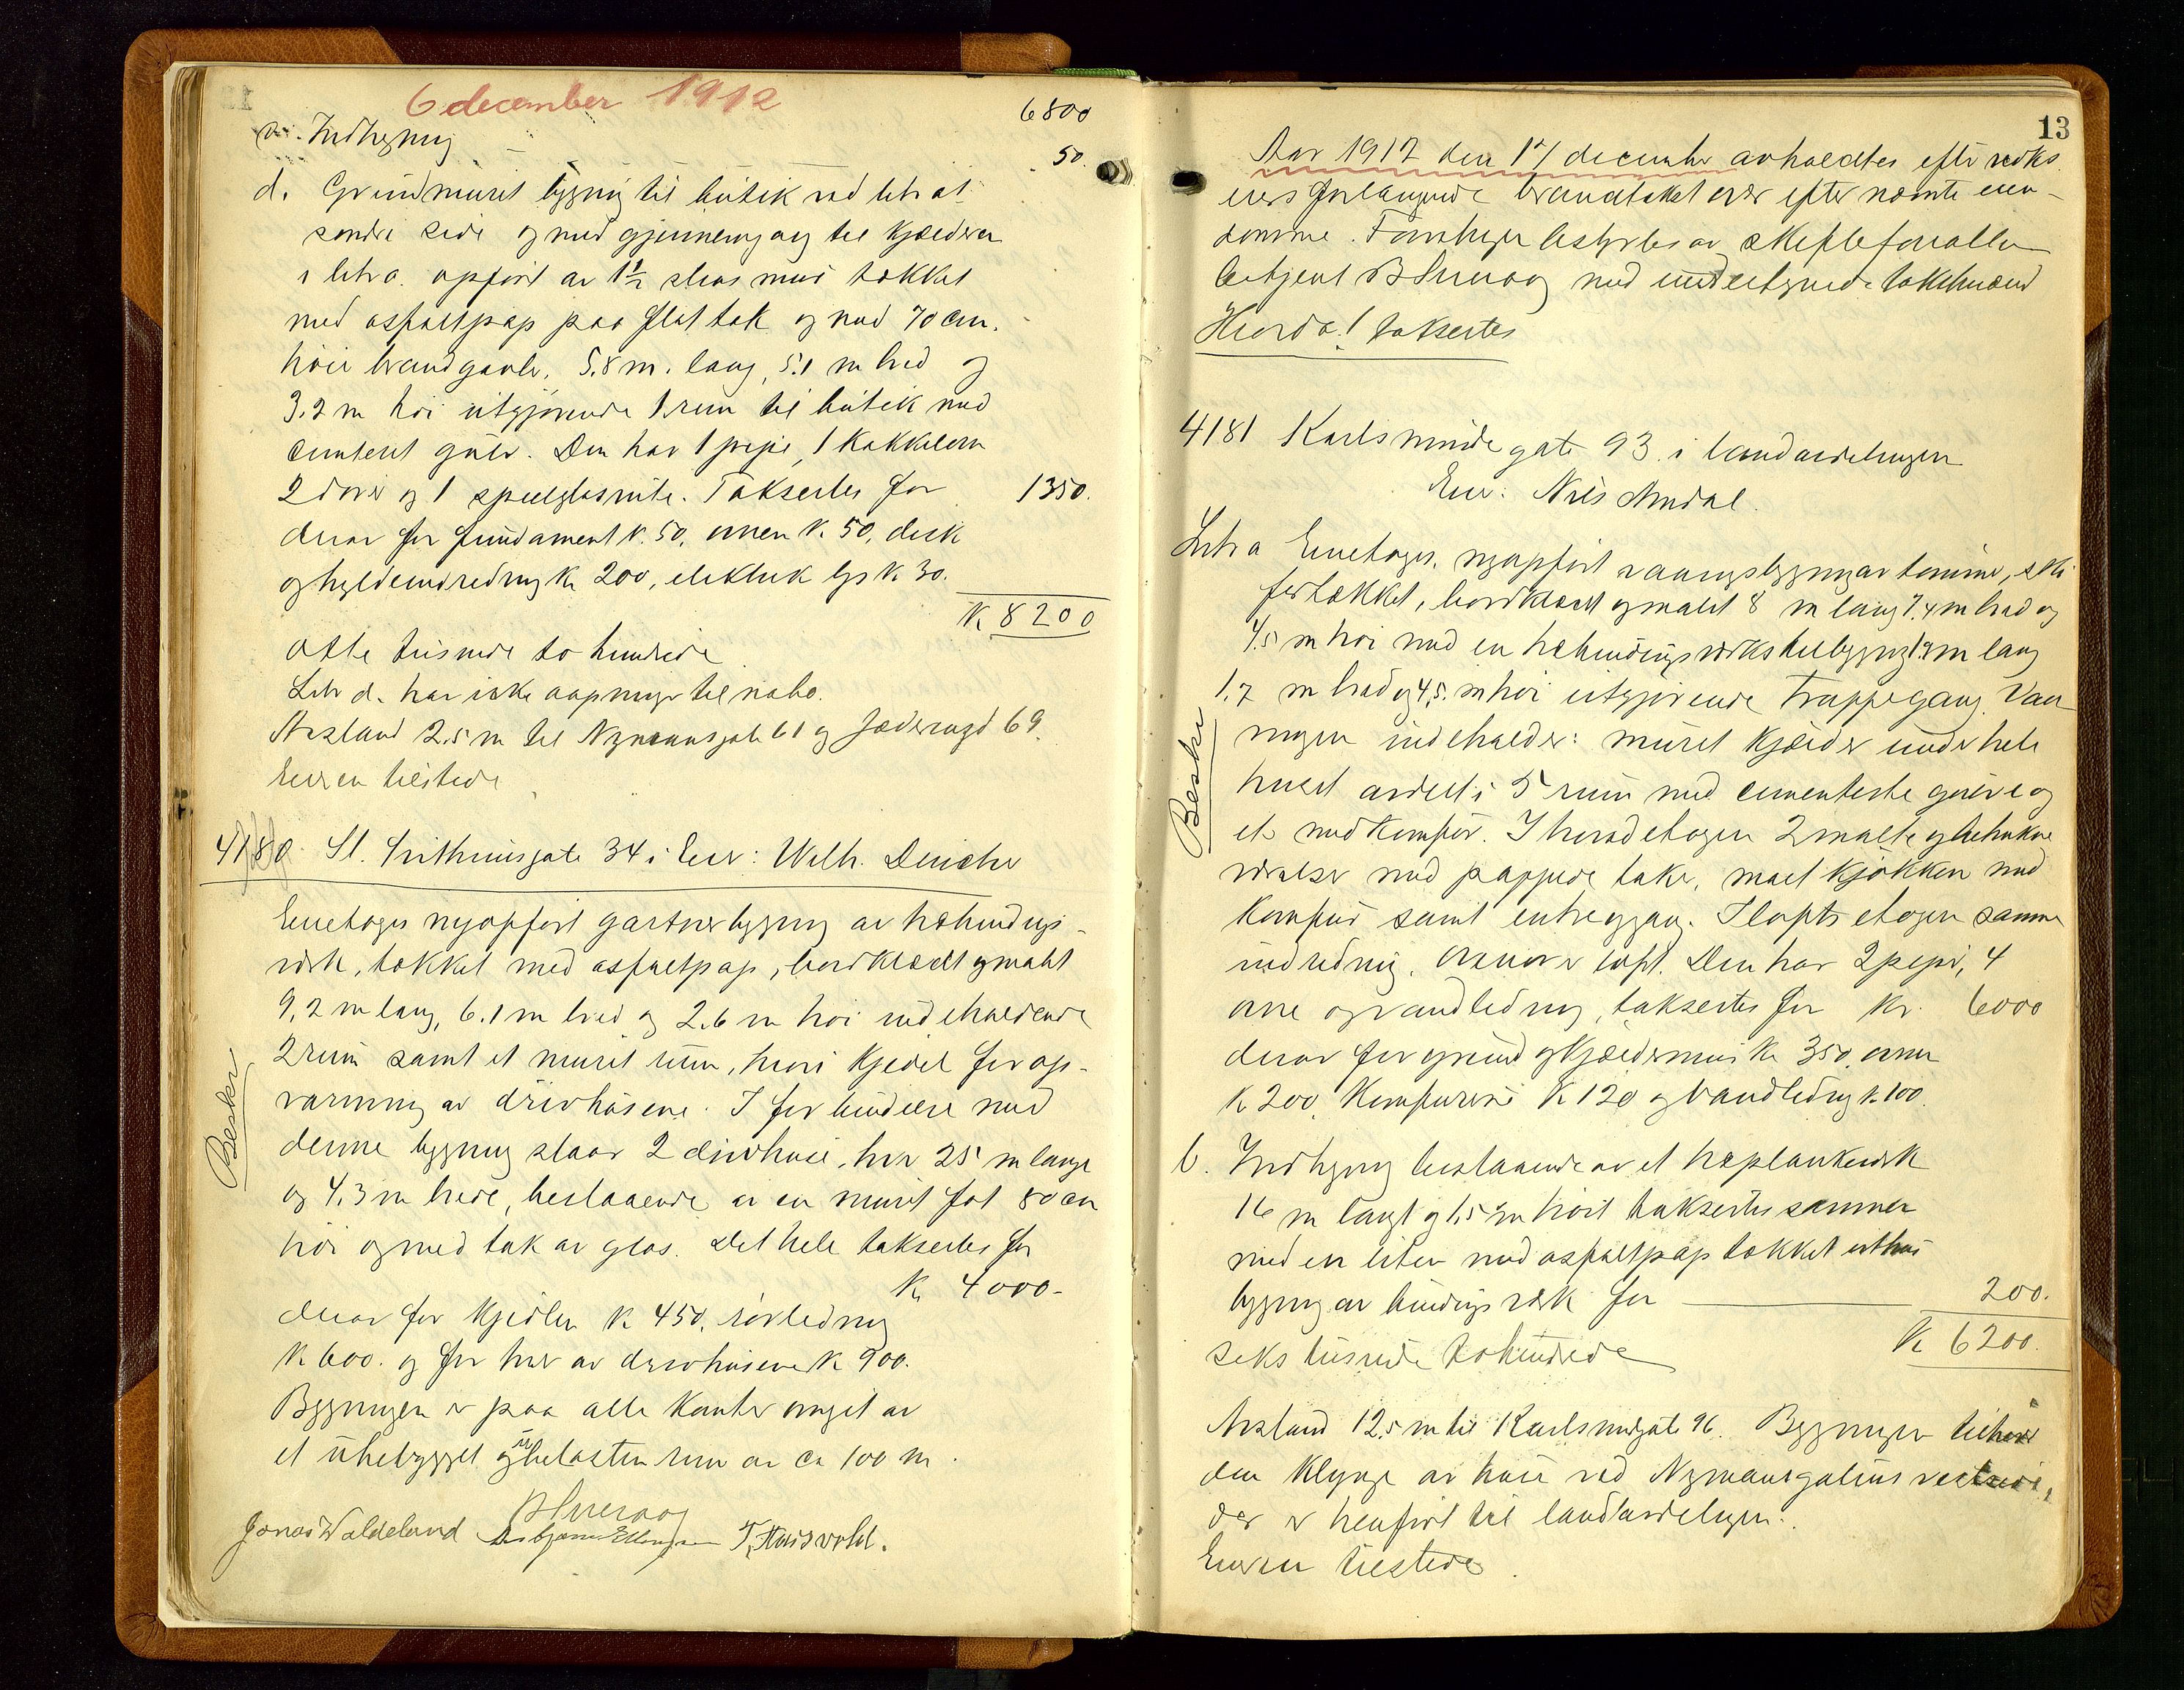 6 december 1912
6800
Indhegning
50.
d. Grundmuret bygning til butik ved litr a's
søndre side og med gjennemgang til kjælderen
i litr a. opført av 1 1/2 stens mur tækket
med asfaltpap paa flat tak og med 70 cm.
høie brandgavle. 5.8 m. lang, 5.1 m bred og
3.2 m høi utgjørende 1 rum til butik med
cementert gulv. Den har 1 pipe, 1 kakkelovn
2 døre og 1 speilglasrute. Taksertes for 1350.
derav for fundament k. 50, ovnen k. 50, disk
og hyldeindredning kr 200, elektrisk lys k. 30.
K 8200
Otte tusinde to hundrede
Litr d. har ikke aapninger til nabo.
Avstand 2.5 m til Nymansgate 61 og Jæderengd 69.
Eieren tilstede
4180. St. Svithunsgate 34 i Eier: Welh.
Eenetages nyopført gartnerbygning av halvbindings-
verk, tækket med asfaltpap, bordklædt og malt
9,2 m lang, 6.1 m bred og 2.6 m høi indeholdende
2 rum samt et muret rum, hvori kjedel for op-
varmning av drivhusene. I forbindelse med
denne bygning staar 2 drivhuse, hver 25 m lange
og 4,3 m brede, bestaaende av en muret fot 80 cm
høi og med tak av glas. Det hele taksertes for
K 4000-
derav for kjedlen k 450, rørledning
k 600. og for hver av drivhusene k 900.
Bygningen er paa alle kanter omgit av
et ubebygget og ubelastet rum av ca 100 m.
Beskr
Jonas Waldeland Asbjørn Ellingsen T. Hausvold.
13
Aar 1912 den 17 december avholdtes efter rekvi-
erers forlangende brandtakst over efter nævnte eien-
domme. Forretningen bestyrtes av skifteforvalter
betjent med undertegnede takstmænd
Hvorda! taksertes
4181 Karlsminde gate 93. i landavdelingen
Eier: Nils Amdal.
Litr a Eenetages. nyopført vaaningsbygning av tømmer, ski-
fertækket, bordklædt og malt 8 m lang 7.4 m bred og
4.5 m høi med en halvbindingsverks tilbygning 1.9 m lang
1.7 m bred og 4,5. m høi utgjørende trappegang. Vaa-
ningen indeholder: muret kjælder under hele
huset avdelt i 5 rum med cementerte gulve og
et med komfur. I hovedetagen 2 malte og betrukne
værelser med pappede take, malt kjøkken med
komfur samt entregang. I loftsetagen samme
indredning. Ovenover loft. Den har 2 piper, 4
ovne og vandledning, taksertes for kr. 6000
derav for grund og kjældermur kr 350, ovner
k 200, komfurerne k 120 og vandledning k. 100.
b. Indhegning bestaaende av et træplankeverk
16 m langt og 1,5 m høit taksertes sammen
med en liten med asfaltpap tækket uthus
bygning av bindingsverk for 200.
K 6200.
seks tusinde tohundrede
Avstand 12.5 m til Karlsmindegate 96. Bygningen tilhører
den klynge av huse ved Nymansgatens vestside,
der er henført til landavdelingen.
Eieren tilstede.
Beskr